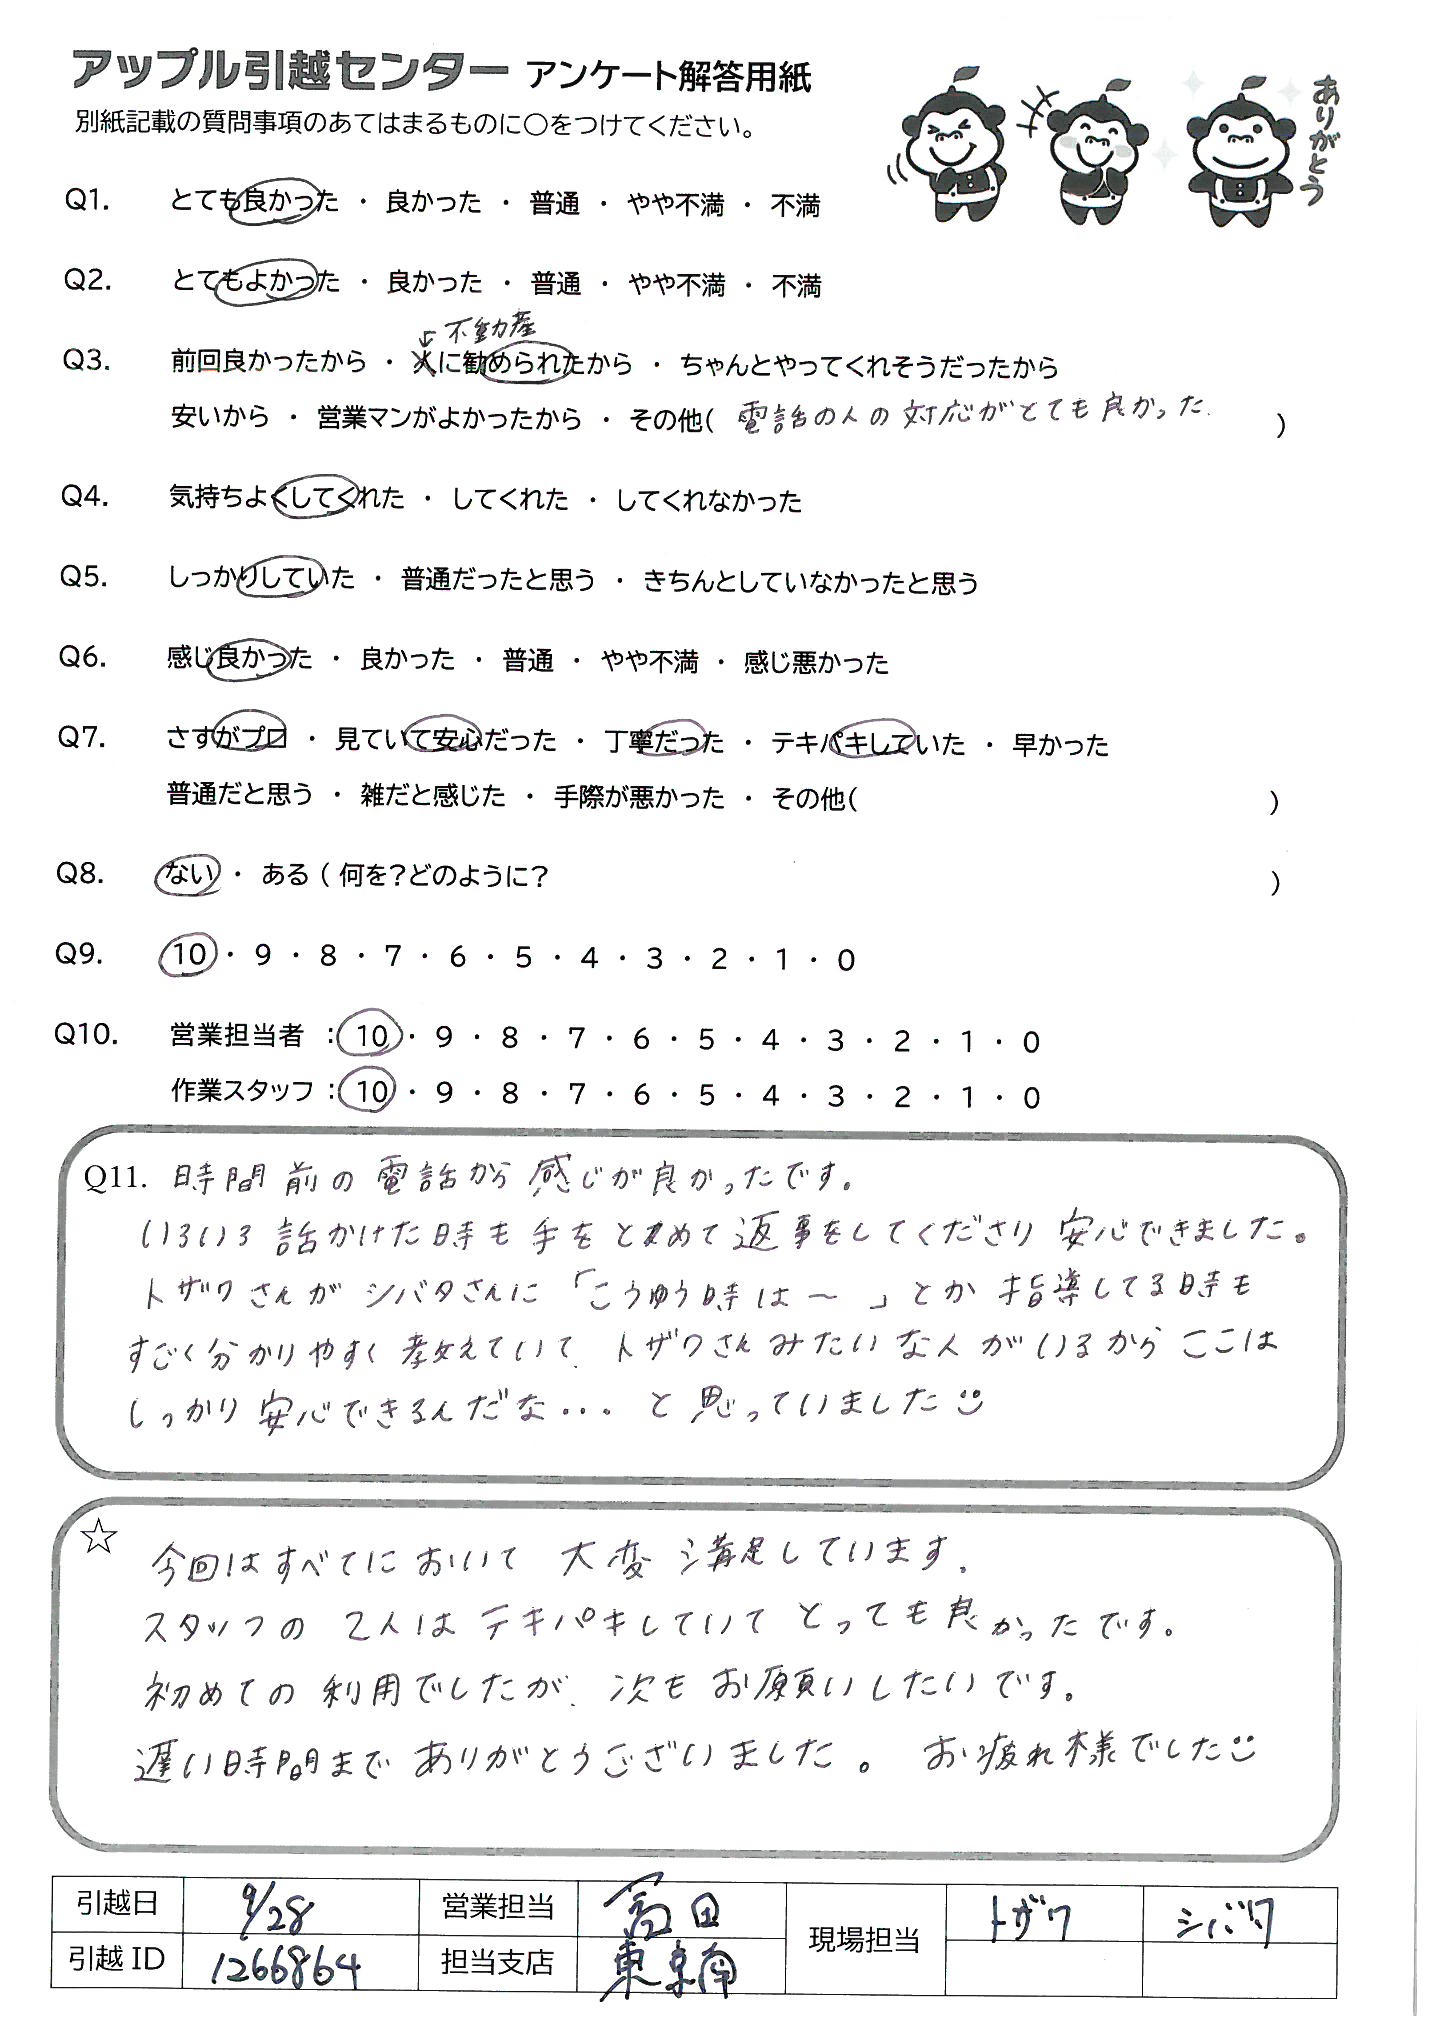 アップル引越センター アンケート解答用紙
別紙記載の質問事項のあてはまるものに○をつけてください。
ありがとう
Q1. とても良かった ・ 良かった ・ 普通 ・ やや不満 ・ 不満
Q2. とてもよかった ・ 良かった ・ 普通 ・ やや不満 ・ 不満
不動産
Q3. 前回良かったから ・ 人に勧められたから ・ ちゃんとやってくれそうだったから
安いから ・ 営業マンがよかったから ・ その他( 電話の人の対応がとても良かった. )
Q4. 気持ちよくしてくれた ・ してくれた ・ してくれなかった
Q5. しっかりしていた ・ 普通だったと思う ・ きちんとしていなかったと思う
Q6. 感じ良かった ・ 良かった ・ 普通 ・ やや不満 ・ 感じ悪かった
Q7. さすがプロ ・ 見ていて安心だった ・ 丁寧だった ・ テキパキしていた ・ 早かった
普通だと思う ・ 雑だと感じた ・ 手際が悪かった ・ その他( )
Q8. ない ・ ある ( 何を?どのように? )
Q9. 10 ・ 9 ・ 8 ・ 7 ・ 6 ・ 5 ・ 4 ・ 3 ・ 2 ・ 1 ・ 0
Q10. 営業担当者 : 10 ・ 9 ・ 8 ・ 7 ・ 6 ・ 5 ・ 4 ・ 3 ・ 2 ・ 1 ・ 0
作業スタッフ : 10 ・ 9 ・ 8 ・ 7 ・ 6 ・ 5 ・ 4 ・ 3 ・ 2 ・ 1 ・ 0
Q11. 時間前の電話から感じが良かったです。
いろいろ話かけた時も手をとめて返事をしてくださり安心できました。
トザワさんがシバタさんに「こうゆう時は〜」とか指導してる時も
すごく分かりやすく教えていて、トザワさんみたいな人がいるからここは
しっかり安心できるんだな... と思っていました
☆ 今回はすべてにおいて大変満足しています.
スタッフの2人はテキパキしていてとっても良かったです。
初めての利用でしたが、次もお願いしたいです。
遅い時間までありがとうございました。 お疲れ様でした
引越日 9/28 営業担当 富田 現場担当 トザワ シバタ
引越ID 1266864 担当支店 東京南